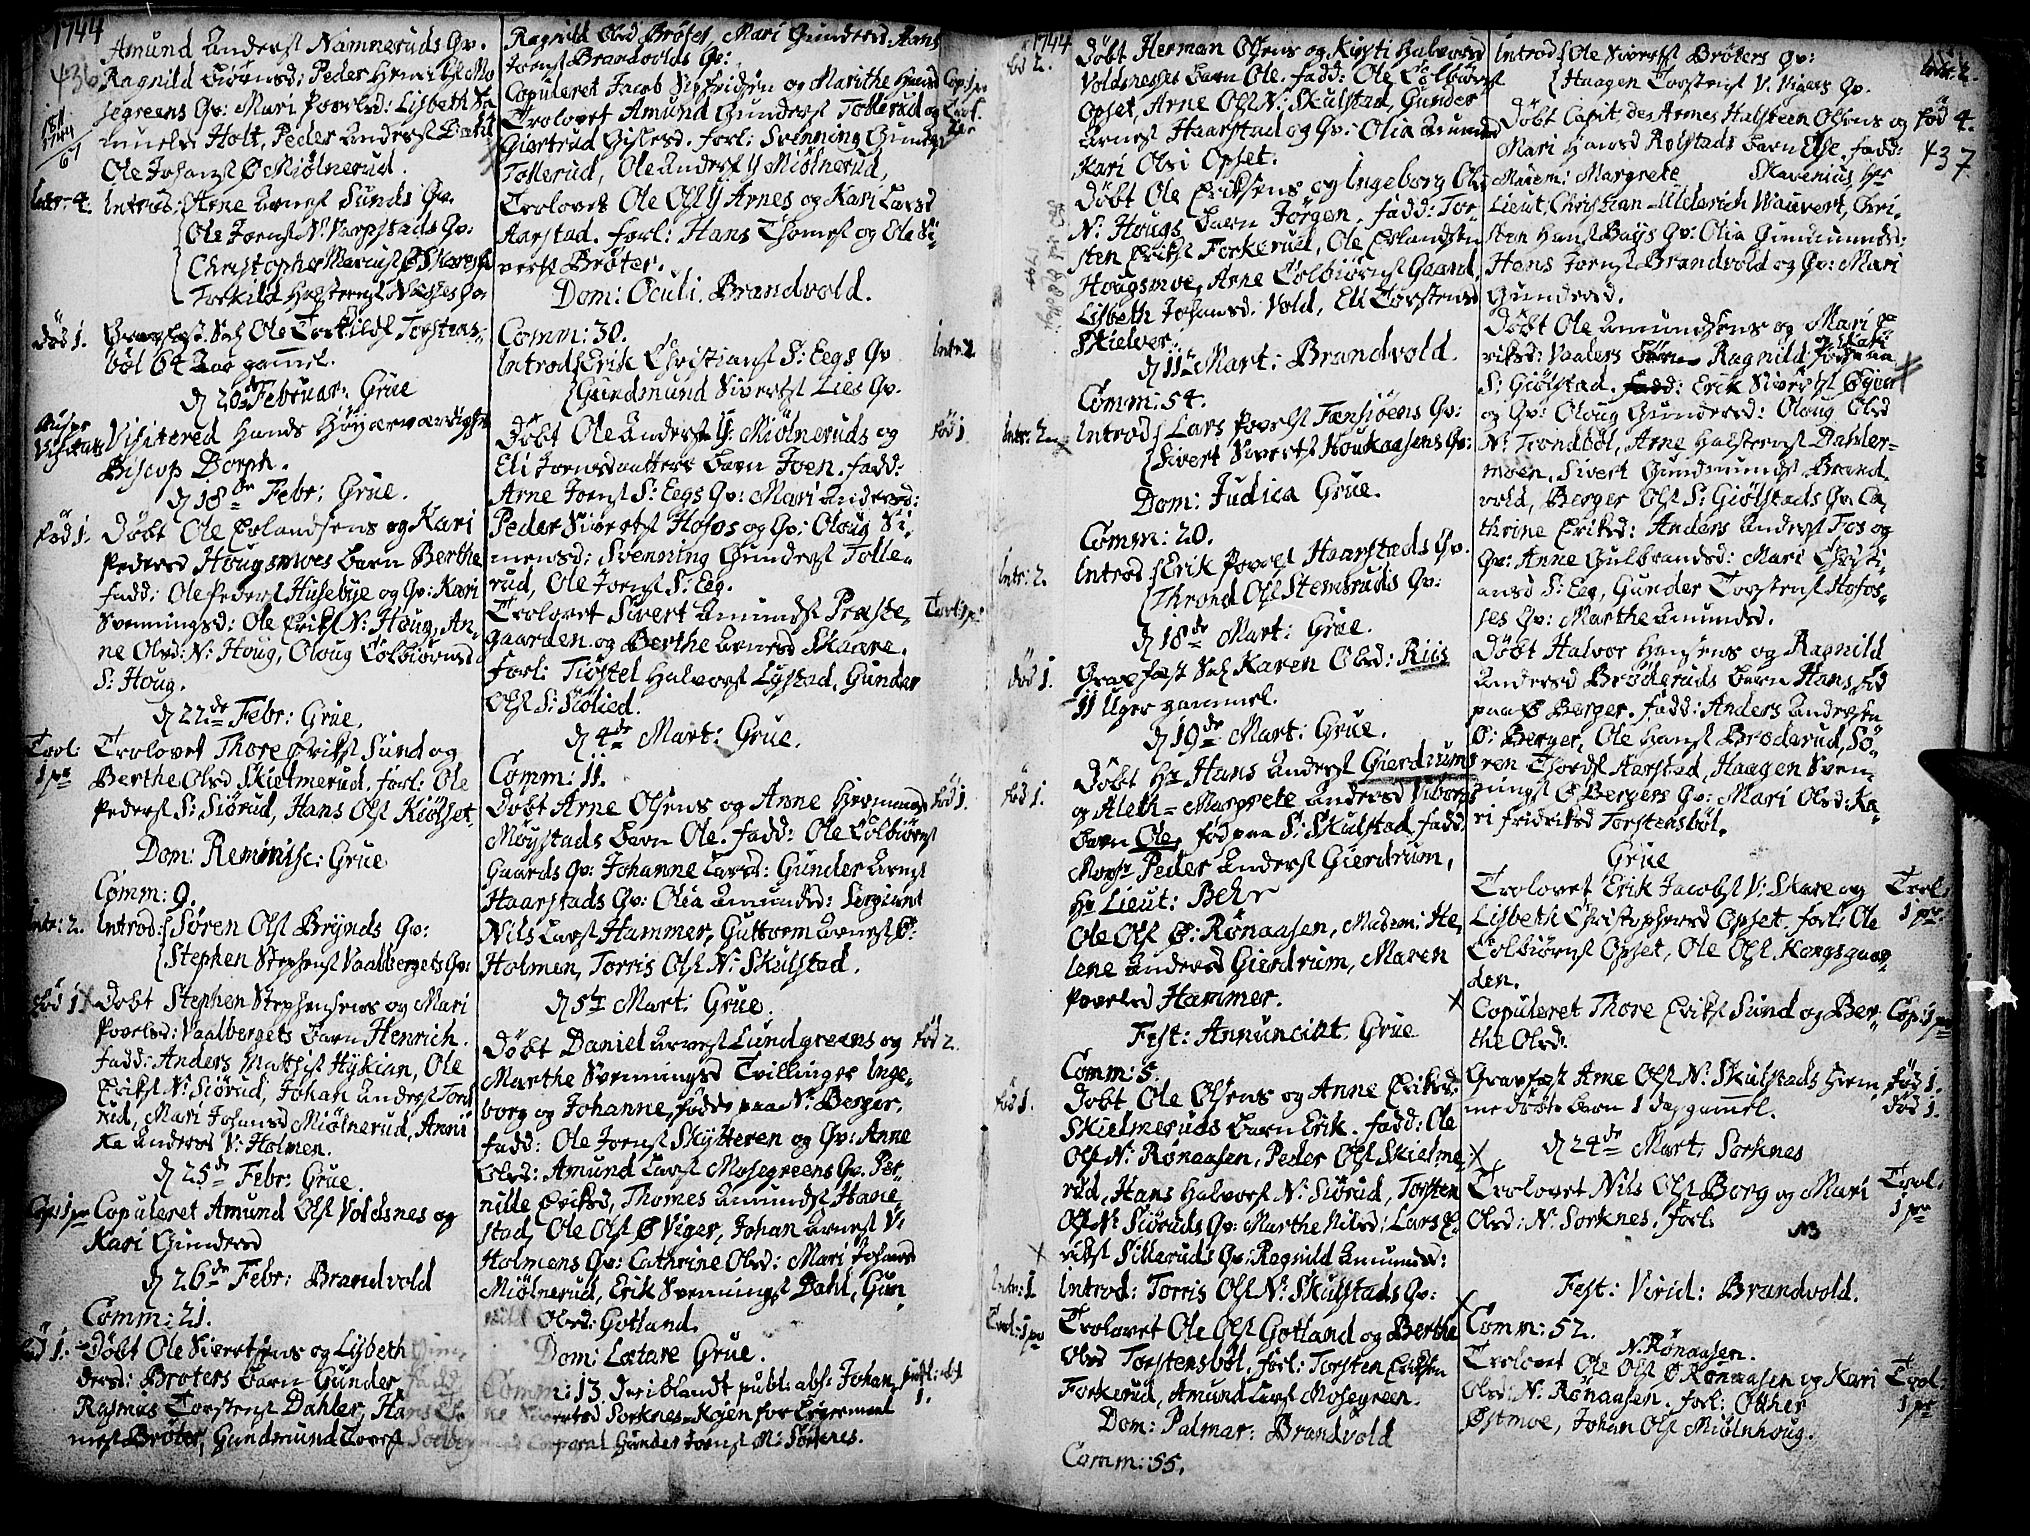 1744
Amund Anders. Namneruds Qv.
436
Ragnild Biörnsd: Peder Henrichs. Mo
segreens Qv: Mari Povelsd: Lisbeth Sa
muelsd Holt, Peder Anders. Dahl
Ole Johans. Ø Miölnerud.
Intr: 4. Introd: Arne Arnes. Sunds Qv.
Ole Joens. N: Varpstads Qv:
Christopher
Torkild Halstens.
död 1. Gravfæst Sal. Ole Torkilds. Torstens-
böl 64 Aar gammel.
d 20de Februar: Grue
Bispe Visitats Visitered Hands Höyærværdighed
Biscop Dorph.
d 18de Febr: Grue.
föd 1. Döbt Ole Erlandsens og Kari
Pedersd Hougsmoes barn Berthe
fadd: Ole Peders. Husebye og Qv: Kari
Svenningsd: Ole Eriks. N: Houg, An-
ne Olsd: N: Houg, Oloug Colbiörnsd
S: Houg.
d 22de Febr: Grue.
Trol: 1 pr Trolovet Thore Eriks. Sund og
Berthe Olsd Skielmerud, forl: Ole
Peders. S: Siörud, Hans Ols. Kiölset.
Dom: Reminisc: Grue
Comm: 9.
Intr: 2. Introd: Sören Ols. Brynds Qv:
Stephen Stephens. Vaalbergets Qv:
föd 1. Döbt Stephen Stephensens og Mari
Povelsd: Vaalbergets barn Henrich.
fadd: Anders Mathis. Hykian, Ole
Eriks. N: Siörud, Johan Anders. Tord
rud, Mari Johansd Miölnerud, Anni
ka Andersd V: Holmen.
d 25de Febr: Grue.
Cop: 1 pr Copuleret Amund Ols. Voldsnes og
Kari Gundersd
d 26de Febr: Brandvold
Comm: 21.
föd 1. Döbt Ole Sivertsens og Lisbeth
dersd: Bröters barn Gunder
Rasmus Torstens. Dahler, Hans Tho
mes. Bröter, Gundmund Tores. Solber
Ragnild Olsd Bröter, Mari Gundersd. Hans
Joens. Brandvolds Qv:
Copuleret Jacob Sigfridsen og Marithe Hansd
Trolovet Amund Gunders. Tollerud og
Giertrud Gislesd. forl: Svenning Gunders.
Tollerud, Ole Anders. Y Miölnerud,
Trolovet Ole Ols. Y Arnes og Kari Larsd
Aarstad. forl: Hans Thomes. og Ole Si-
vers. Bröter.
Dom: Oculi. Brandvold.
Comm: 30.
Introd: Erik Christians. S: Eegs Qv Intr: 2.
Gundmund Siverts. Lies Qv.
Döbt Ole Anders. Y: Miölneruds og föd 1
Eli Joensdaatters barn Joen. fadd:
Arne Joens. S: Eegs Qv: Mari Andersd:
Peder Siverts. Hofos og Qv: Oloug Si-
mensd: Svenning Gunders. Tolle-
rud, Ole Joens. S: Eeg.
Trolovet Sivert Amunds. Præste- Trol: 1 pr
gaarden og Berthe Arnesd Skaare.
forl: Tiöstel Halvors. Lystad, Gunder
Ols. S: Siölied.
d 4de Mart: Grue.
Comm: 11.
Döbt Arne Olsens og Anne Hermansd föd 1.
Möystads barn Ole. fadd: Ole Colbiörns.
Gaards Qv: Johanne Larsd: Gunder Arnes.
Haarstads Qv: Olia Amundsd: Sergiant
Nils Lars. Hammer, Guttorm Arnes. Ø:
Holmen, Torris Ols. N: Skulstad.
d 5te Mart: Grue.
Döbt Daniel Arves. Lundgreens og föd 2.
Marthe Svenningsd Tvillinger Inge-
borg og Johanne, födde paa N: Berger.
fadd: Ole Joens. Skytteren og Qv: Anne
Olsd: Amund Lars. Mosegreens Qv. Per-
nille Eriksd, Thomes Amunds. Hane-
stad, Ole Ols. Ø Viger, Johan Arnes. V:
Holmens Qv: Cathrine Olsd: Mari Johansd
Miölnerud, Erik Svennings. Dahl, Gun
nild Olsd: Gotland.
Dom: Lætare Grue.
Comm: 13. deriblandt publ: abs: Johan publ: abs: 1.
Sivertsd Sorknes-Kojen for Leiermaal
Corporal Gunder Joens. N: Sorknes.
1744
föd 2. Döbt Herman Olsens og Kirsti Halvorsd
Voldsneses barn Ole. fadd: Ole Colbiörns.
Opset, Arne Ols. N: Skulstad, Gunder
Arnes. Haarstad og Qv: Olia Amundsd
Kari Olsd Opset.
Döbt Ole Eriksens og Ingeborg Olsd
N: Hougs barn Jörgen. fadd: Tor-
sten Eriks. Forkerud, Ole Erlandsen
Hougsmoe, Arne Colbiörns. Gaard,
Lisbeth Johansd. Vold, Eli Torstensd
Skielver.
d 11te Mart: Brandvold.
Comm: 54.
Intr: 2. Introd: Lars Povels. Tansjöens Qv:
Sivert Siverts. Koukaasens Qv:
Dom: Judica Grue.
Comm: 20.
Intr: 2. Introd: Erik Povels. Haarstads Qv.
Thrond Ols. Stemsruds Qv:
d 18de Mart: Grue.
död 1. Gravfæst Sal. Karen Olsd: Riis
11 Uger gammel.
d 19de Mart: Grue.
föd 1. Döbt Hr Hans Anders. Gierdrums
og Aleth-Margrete Andersd Viborgs
barn Ole, föd paa S: Skulstad. fadd:
Monsr Peder Anders. Gierdrum,
Hr Lieut: Behr
Ole Ols. Ø: Rönaasen, Madem: He-
lene Andersd Gierdrum, Maren
Povelsd Hammer.
Fest: Annunciat. Grue
Comm: 5.
föd 1. Döbt Ole Olsens og Anne Eriksd:
Skielmeruds barn Erik. fadd: Ole
Ols. N: Rönaasen, Peder Ols. Skielme-
rud, Hans Halvors. N: Siörud, Torsten
Ols. N: Siöruds Qv: Marthe Nilsd: Lars E-
riks. Silleruds Qv: Ragnild Amundsd:
Intr: 1 Introd: Torris Ols. N: Skulstads Qv:
Trol: 1 pr Trolovet Ole Ols. Gotland og Berthe
Olsd Torstensböl. forl: Torsten Eriksen
Forkerud, Amund Lars. Mosegreen.
Dom: Palmar: Brandvold
Comm: 55.
Introd: Ole Siverts. Bröters Qv: Intr: 2.
Haagen Torstens. V. Vigers Qv.
Döbt Capit. des Armes Halsteen Olsens og föd 4.
Mari Hansd Rolstads barn Else. fadd: 437
Madem: Margrete Stavenius Hr
Lieut. Christian Ulderich Wauvert, Chri-
sten Hans. Bays Qv: Olia Gundmundsd:
Hans Joens. Brandvold og Qv: Mari
Gundersd.
Döbt Ole Amundsens og Mari E-
riksd: Vaalers barn Ragnild
S: Giölstad. fadd: Erik Siverts. Öyer
og Qv: Oloug Gundersd: Oloug Olsd
N: Trondböl, Arne Halstens. Dahler-
moen, Sivert Gundmunds. Brand-
vold, Berger Ols. S: Giölstads Qv: Ca-
thrine Eriksd: Anders Anders. Tos og
Qv: Anne Gulbrandsd: Mari Christi-
ansd S: Eeg, Gunder Torstens. Hofos-
ses Qv: Marthe Amundsd.
Döbt Halvor Hansens og Ragnild
Andersd Bröderuds barn Hans, föd
paa Ø Berger. fadd: Anders Andersen
Ø: Berger, Ole Hans. Bröderud, Sö-
ren Thords. Aarstad, Haagen Sven-
nings. Ø Bergers Qv: Mari Olsd: Ka-
ri Fridriksd Torstensböl.
Grue
Trolovet Erik Jacobs. V: Skare og Trol: 1 pr.
Lisbeth Christophersd Opset. forl: Ole
Colbiörns. Opset, Ole Ols. Kongsgaar-
den.
Copuleret Thore Eriks. Sund og Ber- Cop: 1 pr
the Olsd:
Gravfæst Arne Ols. N: Skulstads hiem föd 1.
medöbte barn 1 dag gammel. död 1.
d 24de Mart: Sorknes
Trolovet Nils Ols. Borg og Mari Trol: 1 pr
Olsd: N: Sorknes. forl:
NB
Fest: Virid: Brandvold.
Comm: 52.
N. Rönaasen.
Trolovet Ole Ols. Ø Rönaasen og Kari Trol: 1 pr
Olsd: N: Rönaasen. forl: Otther
Østmoe, Johan Ols. Miölnhoug.